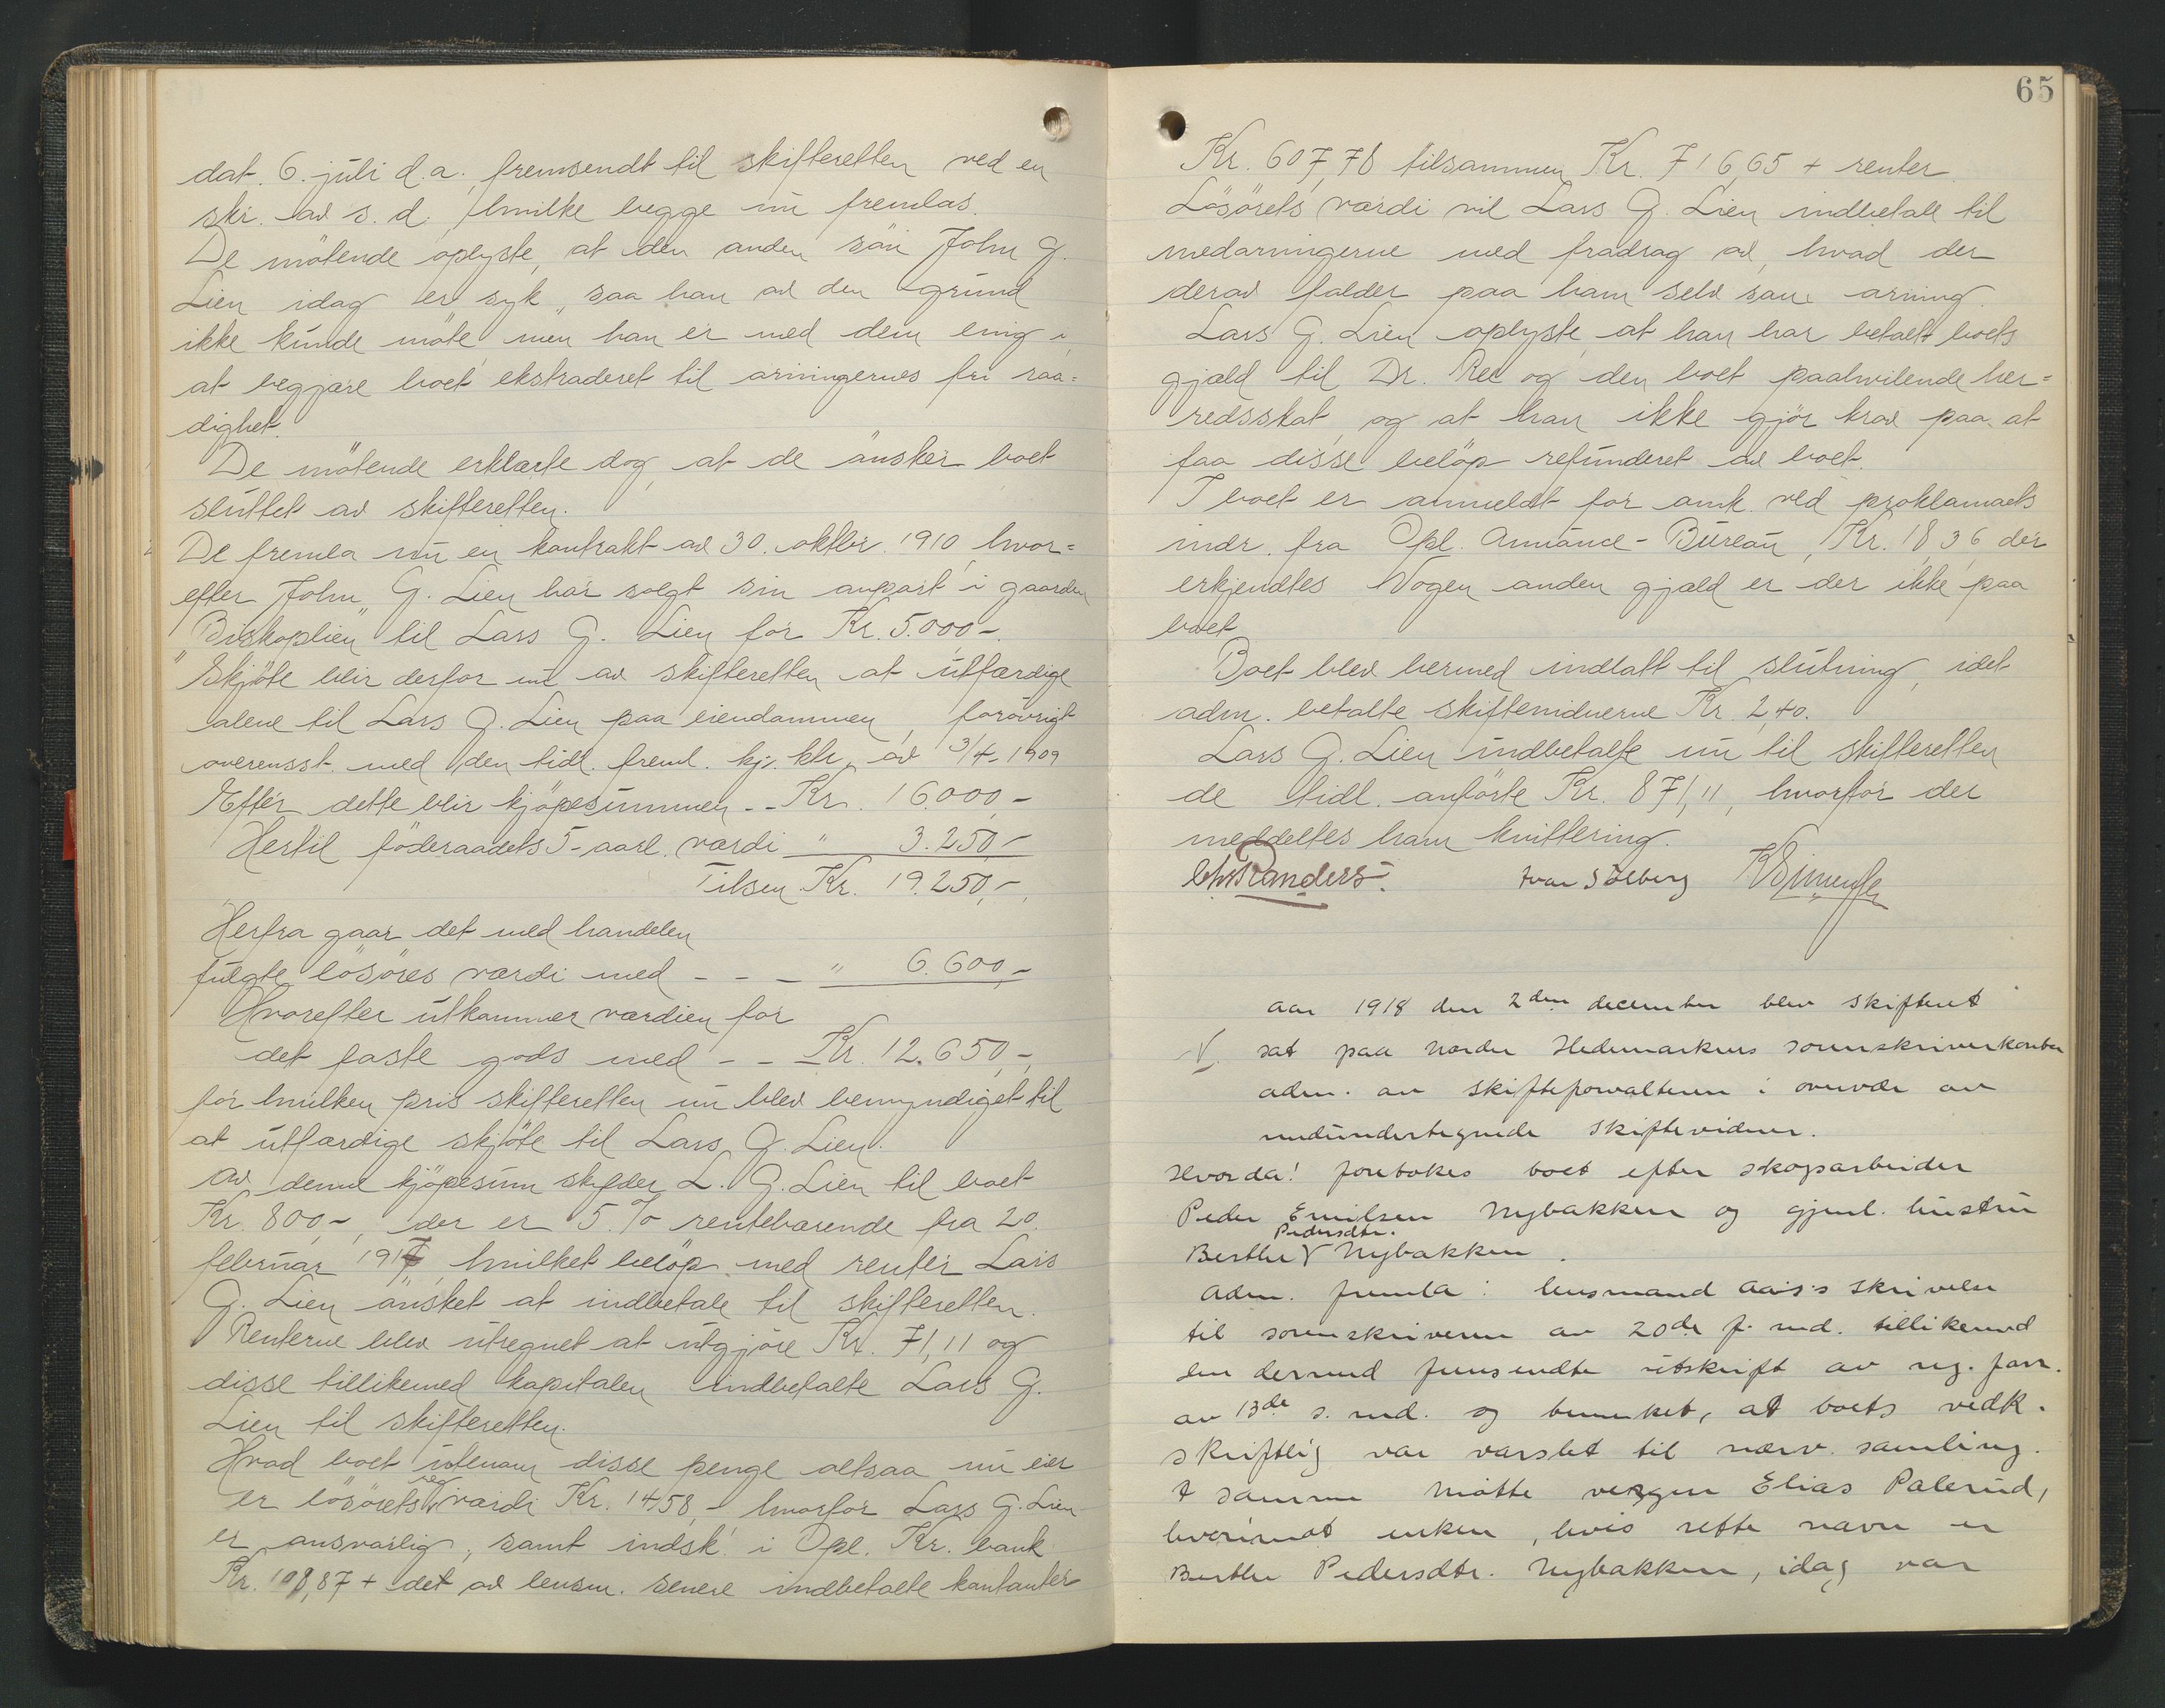 dat. 6. juli d.a. fremsendt til skifteretten ved en
skr. av s. d. hvilke begge nu fremlas.
De møtende oplyste, at den anden søn John G.
Lien idag er syk, saa han av den grund
ikke kunde møte men han er med dem enig i,
at begjære boet ekstraderet til arvingernes fri raa=
dighet.
De møtende erklærte dog, at de ønsker boet
sluttet av skifteretten.
De fremla nu en kontrakt av 30. oktbr. 1910, hvor=
efter John G. Lien har solgt sin anpart i gaarden
„Biskoplien" til Lars G. Lien for Kr. 5.000,-.
Skjøte blir derfor nu av skifteretten at utfærdige
alene til Lars G. Lien paa eiendommen, forøvrigt
overensst. med den tidl. freml. kj. ktr. av 3/4-1909
Efter dette blir kjøpesummen - - Kr. 16.000,-
Hertil føderaadets 5-aarl. værdi " 3.250,-
Tilsm. Kr. 19.250,-,
Herfra gaar det med handelen
fulgte løsøres værdi med - - - " 6.600,-
Hvorefter utkommer værdien for
det faste gods med - - Kr. 12.650,-,
for hvilken pris skifteretten nu blev bemyndiget til
at utfærdige skjøte til Lars G. Lien.
Av denne kjøpesum skylder L. G. Lien til boet
Kr. 800,-, der er 5 % rentebærende fra 20.
februar 1917, hvilket beløp med renter Lars
G. Lien ønsket at indbetale til skifteretten.
Renterne blev utregnet at utgjøre Kr. 71,11 og
disse tillikemed kapitalen indbetalte Lars G.
Lien til skifteretten.
Hvad boet utenom disse penge altsaa nu eier
er løsørets reg. værdi Kr. 1458,- hvorfor Lars G. Lien
er ansvarlig, samt indsk. i Opl. Kr. bank
Kr. 108,87 + det av lensm. senere indbetalte kontanter
65
Kr. 607,78 tilsammen Kr. 716,65 + renter.
Løsørets værdi vil Lars G. Lien indbetale til
medarvingerne med fradrag av, hvad der
derav falder paa ham selv som arving.
Lars G. Lien oplyste, at han har betalt boets
gjæld til Dr. Ree og den boet paahvilende her=
redsskat, og at han ikke gjør krav paa at
faa disse beløp refunderet av boet.
I boet er anmeldt for amk. ved proklamaets
indr. fra Opl. Annonce-Bureau, Kr. 18,36 der
erkjendtes Nogen anden gjæld er der ikke paa
boet
Boet blev hermed indlatt til slutning, idet
adm. betalte skiftevidnerne Kr. 2,40.
Lars G. Lien indbetalte nu til skifteretten
de tidl. anførte Kr. 871,11, hvorfor der
meddeltes ham kvittering.
Chr Randers. Ivar Solberg
Aar 1918 den 2den december blev skifteret
V. sat paa Nordre Hedemarkens sorenskriverkontor
adm. av skifteforvalteren i overvær av
nedundertegnede skiftevidner.
Hvorda! foretokes boet efter skogsarbeider
Peder Emilsen Nybakken og gjenl. hustru
Berthe Pedersdtr. Nybakken.
Adm. fremla: lensmand Aas's skrivelse
til sorenskriveren av 20de f. md. tillikemed
den dermed fremsendte utskrift av reg. forr.
av 13de s. md. og bemerket, at boets vedk.
skriftlig var varslet til nærv. samling.
I samme møtte vergen Elias Palerud,
hvorimot enken, hvis rette navn er
Berthe Pedersdtr. Nybakken, idag var